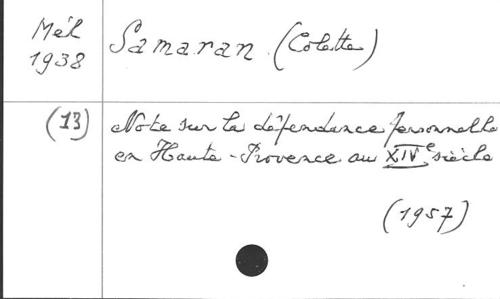 Mél
1938
Samaran (Colette)
(13)
Note sur la dépendance personnelle
en Haute-Provence au XIVe siècle
(1957)